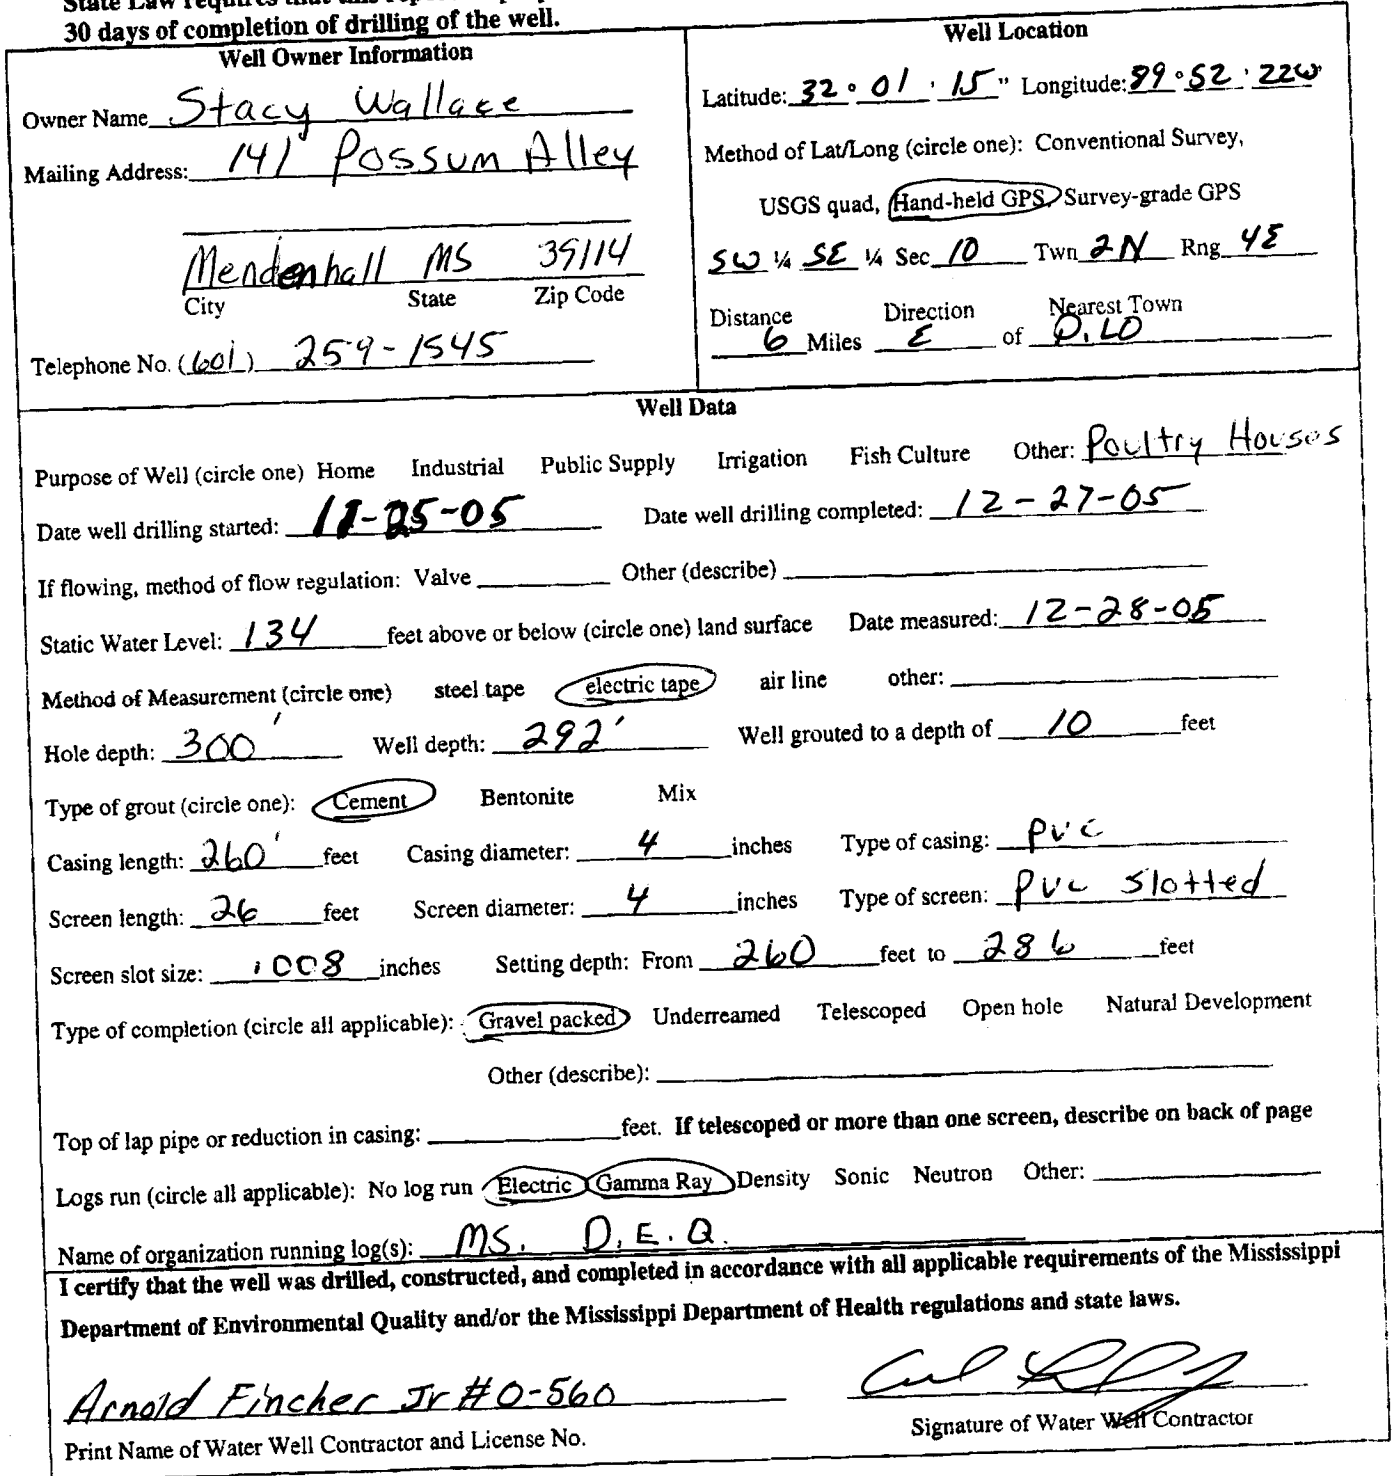 30 days of completion of drilling of the well.
Well Owner Information
Owner Name Stacy Wallace
Mailing Address: 141 Possum Alley
Mendenhall MS 39114
City State Zip Code
Telephone No. (601) 259-1545
Well Location
Latitude: 32 ° 01 ' 15 " Longitude: 89 ° 52 ' 22W
Method of Lat/Long (circle one): Conventional Survey,
USGS quad, Hand-held GPS, Survey-grade GPS
SW ¼ SE ¼ Sec 10 Twn 2N Rng 4E
Distance Direction Nearest Town
6 Miles E of D.LO
Well Data
Purpose of Well (circle one) Home Industrial Public Supply Irrigation Fish Culture Other: Poultry Houses
Date well drilling started: 11-25-05 Date well drilling completed: 12-27-05
If flowing, method of flow regulation: Valve Other (describe)
Static Water Level: 134 feet above or below (circle one) land surface Date measured: 12-28-05
Method of Measurement (circle one) steel tape electric tape air line other:
Hole depth: 300' Well depth: 292' Well grouted to a depth of 10 feet
Type of grout (circle one): Cement Bentonite Mix
Casing length: 260' feet Casing diameter: 4 inches Type of casing: PVC
Screen length: 26 feet Screen diameter: 4 inches Type of screen: PVC Slotted
Screen slot size: .008 inches Setting depth: From 260 feet to 286 feet
Type of completion (circle all applicable): Gravel packed Underreamed Telescoped Open hole Natural Development
Other (describe):
Top of lap pipe or reduction in casing: feet. If telescoped or more than one screen, describe on back of page
Logs run (circle all applicable): No log run Electric Gamma Ray Density Sonic Neutron Other:
Name of organization running log(s): MS. D.E.Q.
I certify that the well was drilled, constructed, and completed in accordance with all applicable requirements of the Mississippi
Department of Environmental Quality and/or the Mississippi Department of Health regulations and state laws.
Arnold Fincher Jr #0-560
Print Name of Water Well Contractor and License No.
Signature of Water Well Contractor